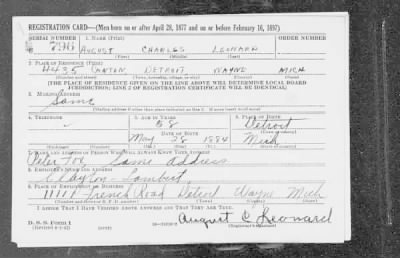 REGISTRATION CARD—(Men born on or after April 28, 1877 and on or before February 16, 1897)
SERIAL NUMBER 1. NAME (Print) ORDER NUMBER
796 AUGUST CHARLES LEONARD
(First) (Middle) (Last)
2. PLACE OF RESIDENCE (Print)
4435 CANTON DETROIT WAYNE MICH
(Number and street) (Town, township, village, or city) (County) (State)
[THE PLACE OF RESIDENCE GIVEN ON THE LINE ABOVE WILL DETERMINE LOCAL BOARD
JURISDICTION; LINE 2 OF REGISTRATION CERTIFICATE WILL BE IDENTICAL]
3. MAILING ADDRESS
Same
[Mailing address if other than place indicated on line 2. If same insert word same]
4. TELEPHONE 5. AGE IN YEARS 6. PLACE OF BIRTH
58 Detroit
DATE OF BIRTH (Town or county)
May 28 1884 Mich
(Mo.) (Day) (Yr.) (State or country)
7. NAME AND ADDRESS OF PERSON WHO WILL ALWAYS KNOW YOUR ADDRESS
Peter Fox Same address
8. EMPLOYER'S NAME AND ADDRESS
Clayton - Lambert
9. PLACE OF EMPLOYMENT OR BUSINESS
11111 French Road Detroit Wayne Mich
(Number and street or R. F. D. number) (Town) (County) (State)
I AFFIRM THAT I HAVE VERIFIED ABOVE ANSWERS AND THAT THEY ARE TRUE.
D. S. S. Form 1 August C Leonard
(Registrant's signature)